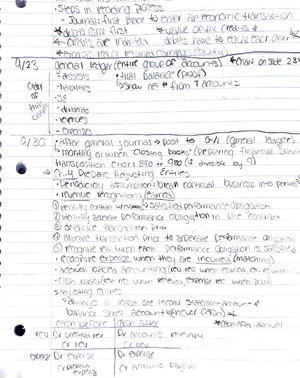 • Steps in recording process
- Journal: first place to enter an economic transaction
* debits come first * value of the credits *
* credits are indented debits have to equal each other *
9/23 general ledger (entire group of accounts) * Chart on slide 23 *
• assets • trial balance (proof)
• liabilities ↳ show net # from T accounts
• SE
• dividends
• revenues
• expenses
9/30 • After general journal → post to G/L (general ledger)
monthly or when "closing books" (preparing financial
transposition error: 890 → 980 (if divisible by 9)
→ Prepare Adjusting Entries
• Periodicity assumption: Divide continual business into periods
• revenue recognition: (earned)
① identify contract → satisfied performance obligation
② identify separate performance obligation in the contract
③ determine transaction price
④ allocate transaction price to separate performance obligation
⑤ recognize rev when each performance obligation is satisfied
• recognize expense when they are incurred (matching)
• accrual basis accounting (rev rec when earned, ex. rec
• cash basis (rev rec when received, expense rec when paid)
• Adjusting Entries
• always at least one income statement account &
balance sheet account (never cash) *
Cash before Cash after
rev Dr unearned rev Dr accounts receivable
Cr rev Cr rev
Dr expense Dr expense
Cr prepaid Cr accounts payable
expense